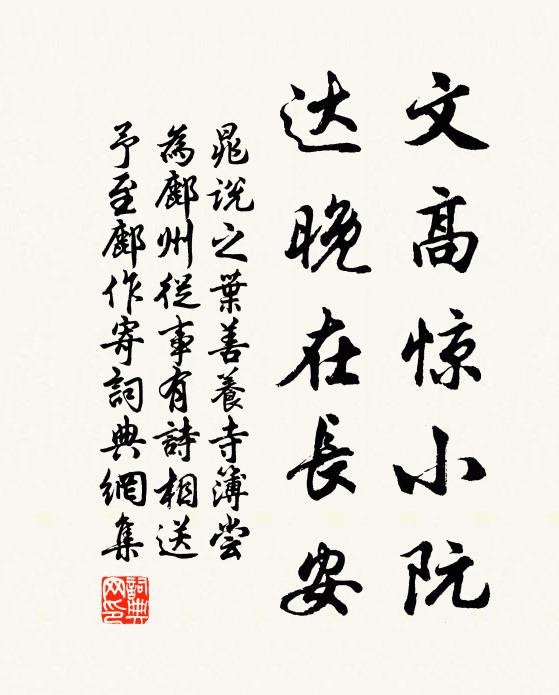 文高惊小阮
达晚在長安
晁说之葉善養寺簿嘗
為鄜州従事有詩相送
予至鄜作寄詞典網集
詞典
网印